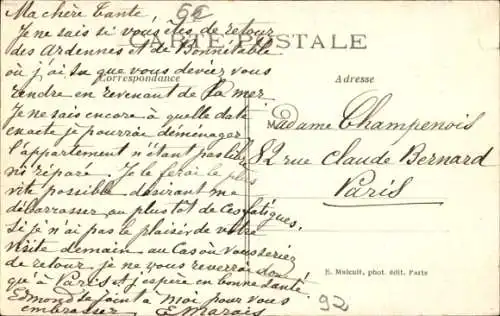 Ma chère Tante,
62
Je ne sais si vous êtes de retour
CARTE POSTALE
des Ardennes et de Bonnétable
où j'ai su que vous deviez vous
Correspondance
Adresse
rendre en revenant de la mer.
Je ne sais encore à quelle date
exacte je pourrai déménager
l'appartement n'étant pas libre
ni réparé. Je le ferai le plus
vite possible désirant me
débarrasser au plus tôt de ces fatigues.
Si je n'ai pas le plaisir de votre
visite demain au cas où vous seriez
de retour je ne vous reverrai donc
qu'à Paris et j'espère en bonne santé.
Edmond se joint à moi pour vous
embrasser E Marais
Madame Champenois
82 rue Claude Bernard
Paris
E. Malcuit, phot. édit. Paris
92